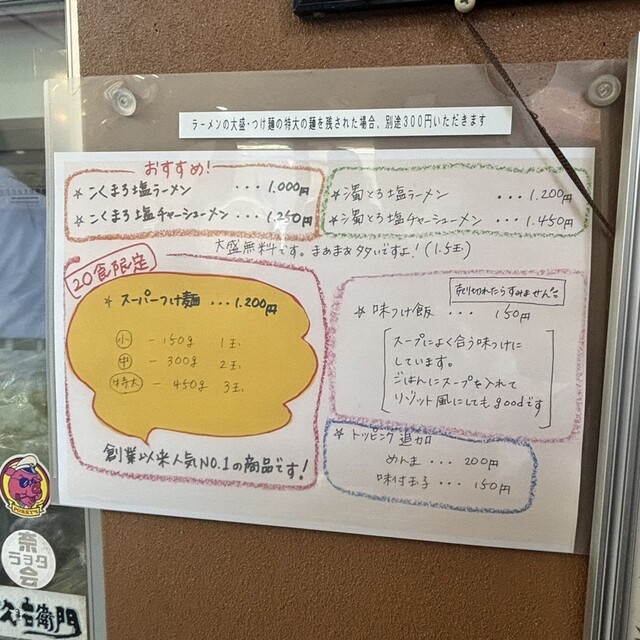 ラーメンの大盛・つけ麺の特大の麺を残された場合、別途300円いただきます
おすすめ!
☆こくまろ塩ラーメン ・・・1.000円
☆こくまろ塩チャーシューメン ・・・1.250円
☆濁とろ塩ラーメン ・・・1.200円
☆濁とろ塩チャーシューメン ・・・1.450円
大盛無料です。まあまあ多いですよ!(1.5玉)
20食限定
☆スーパーつけ麺 ・・・1.200円
小 - 150g 1玉
中 - 300g 2玉
特大 - 450g 3玉
創業以来人気NO.1の商品です!
売り切れたらすみません。
☆味つけ飯 ・・・ 150円
スープによく合う味つけに
しています。
ごはんにスープを入れて
リゾット風にしてもgoodです
☆トッピング追加
めんま ・・・ 200円
味付玉子 ・・・ 150円
奈
ラヲタ
会
右衛門